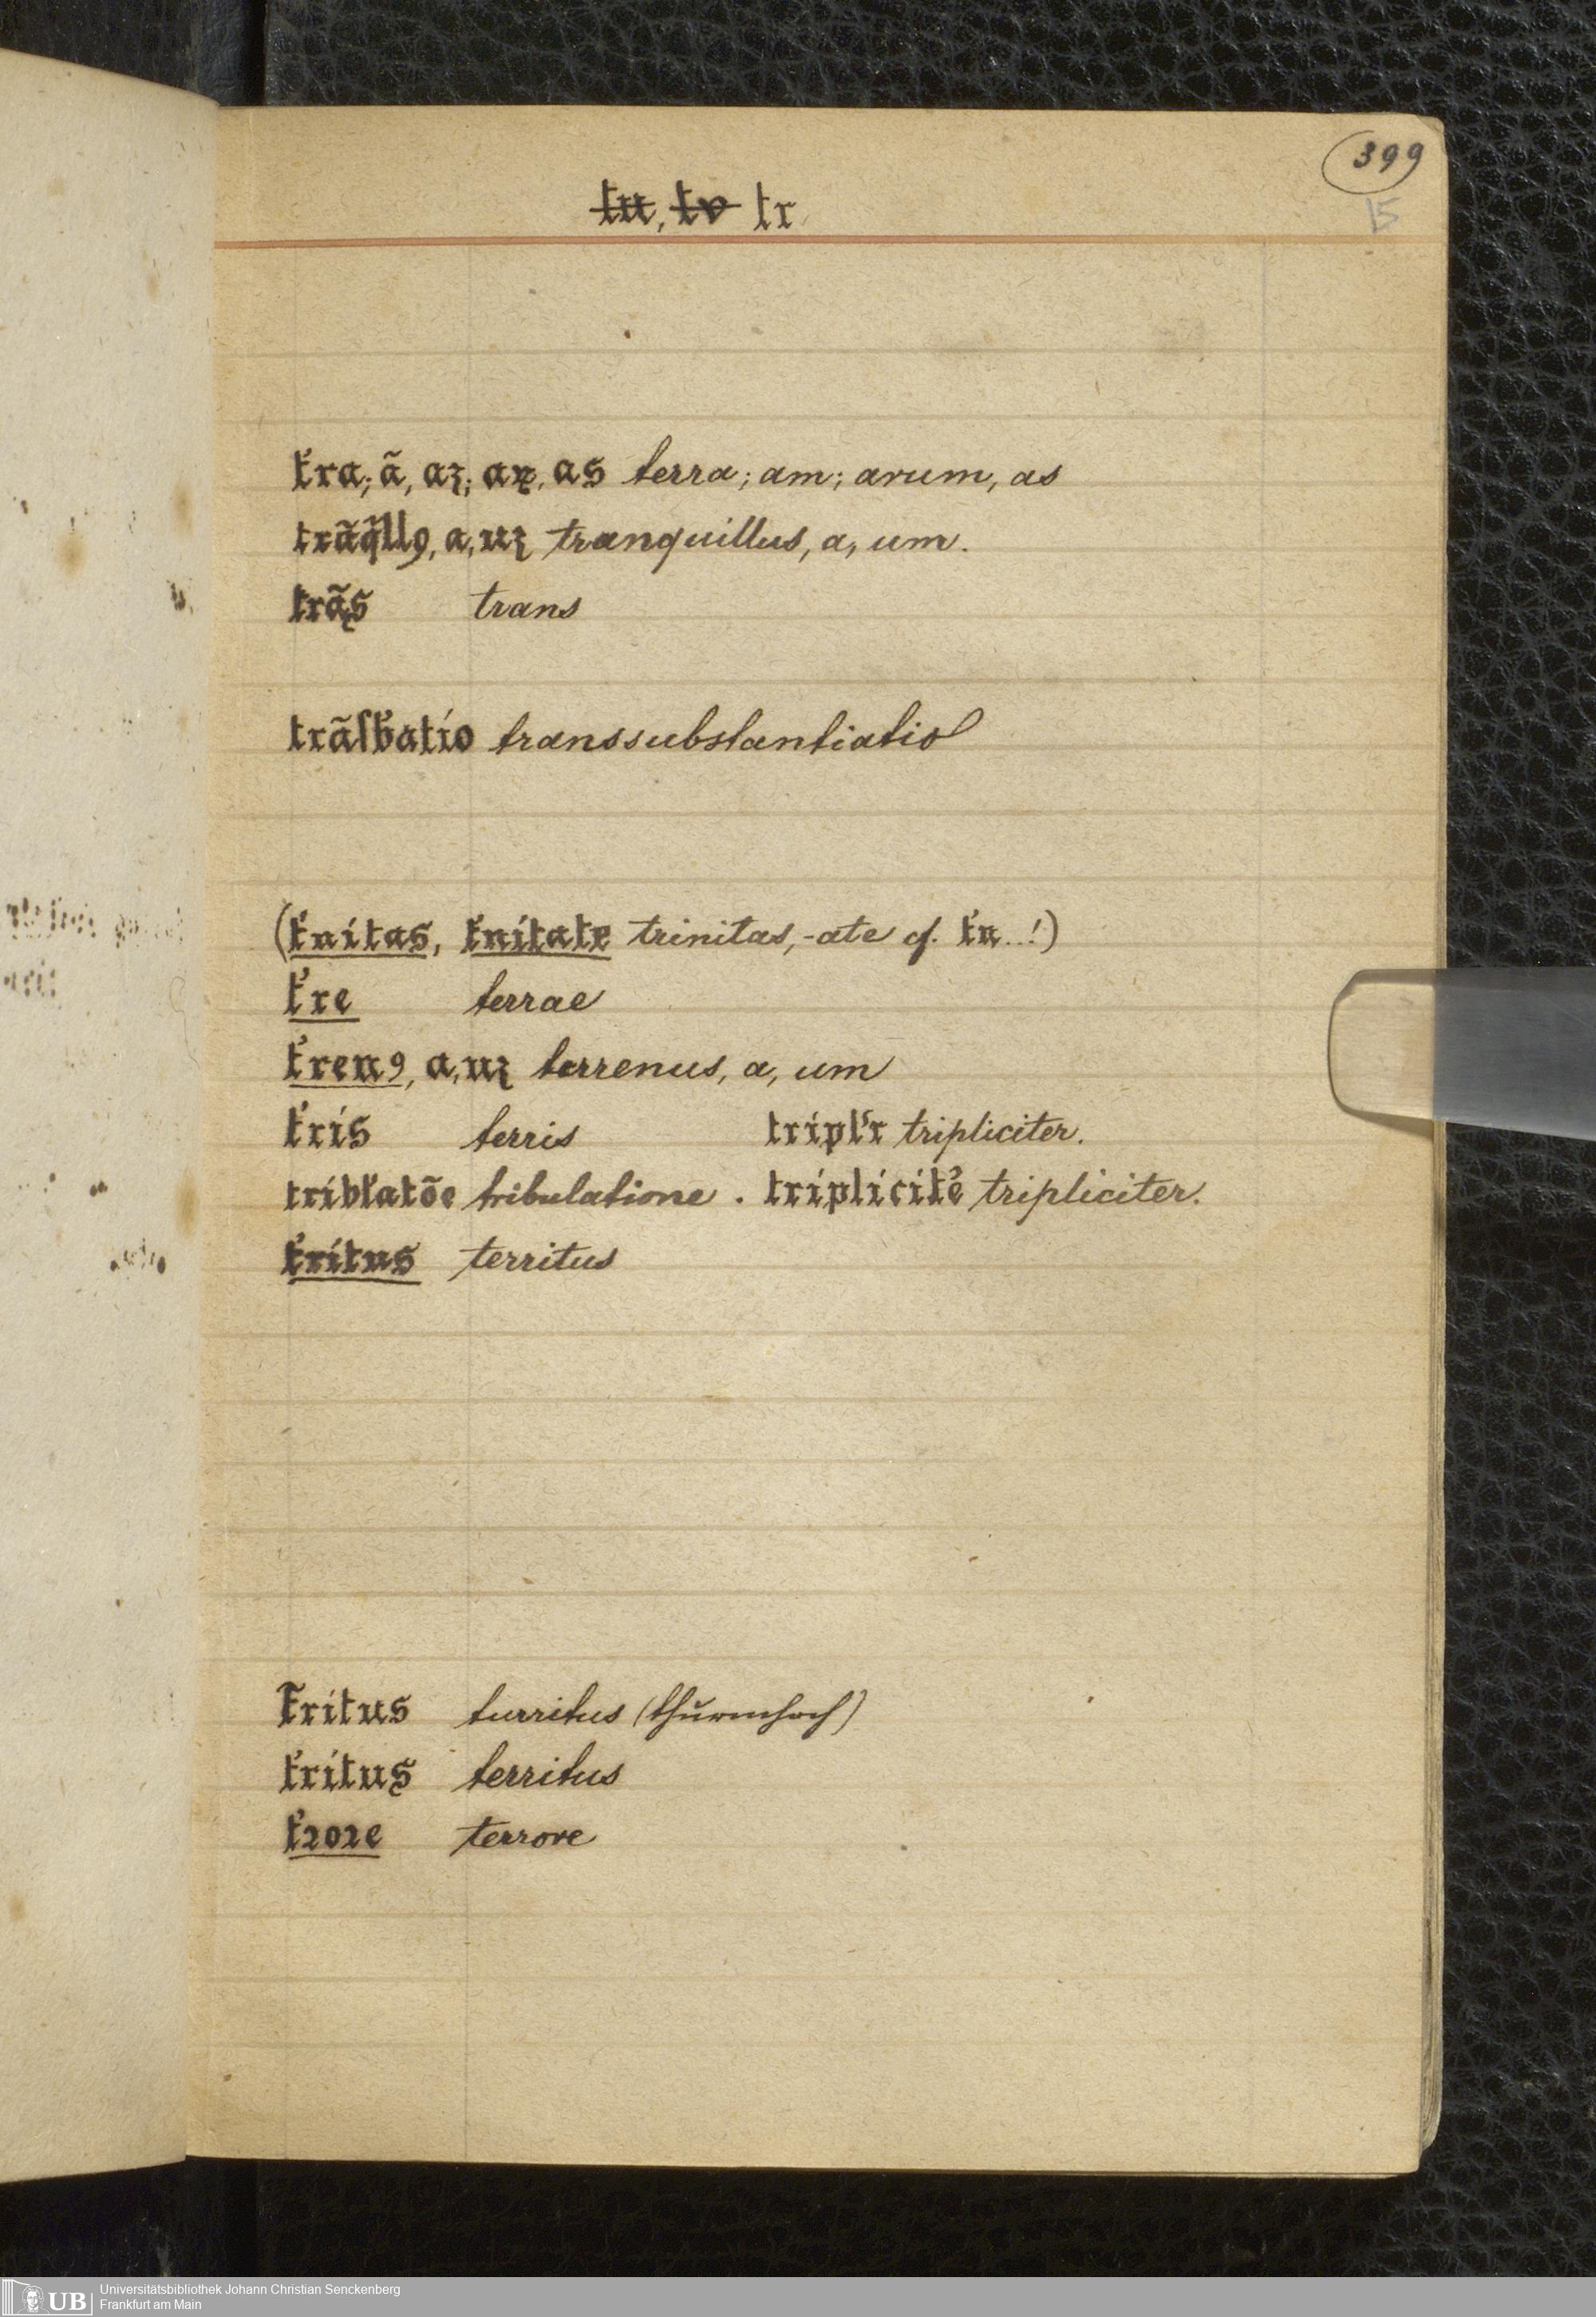 399
15
tu, tv tr
t᷑ra; ã, aꝫ; aꝝ, as terra; am; arum, as
trãq̃llꝯ, a, uꝫ tranquillus, a, um.
trãs trans
trãſb᷑atio transsubstantiatio
(t᷑nitas, t᷑nitate trinitas, -ate cf. t᷑n..!)
t᷑re terrae
t᷑renꝯ, a, uꝫ terrenus, a, um
t᷑ris terris tripl᷑r tripliciter.
tribl᷑atõe tribulatione. triplicit᷑ tripliciter.
t᷑ritus territus
t̃ritus turritus (thurmhoch)
t᷑ritus territus
t᷑ꝛoꝛe terrore
UB Universitätsbibliothek Johann Christian Senckenberg
Frankfurt am Main